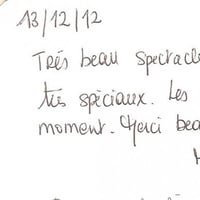 13/12/12
Très beau spectacle
très spéciaux. Les
moment. Merci bea